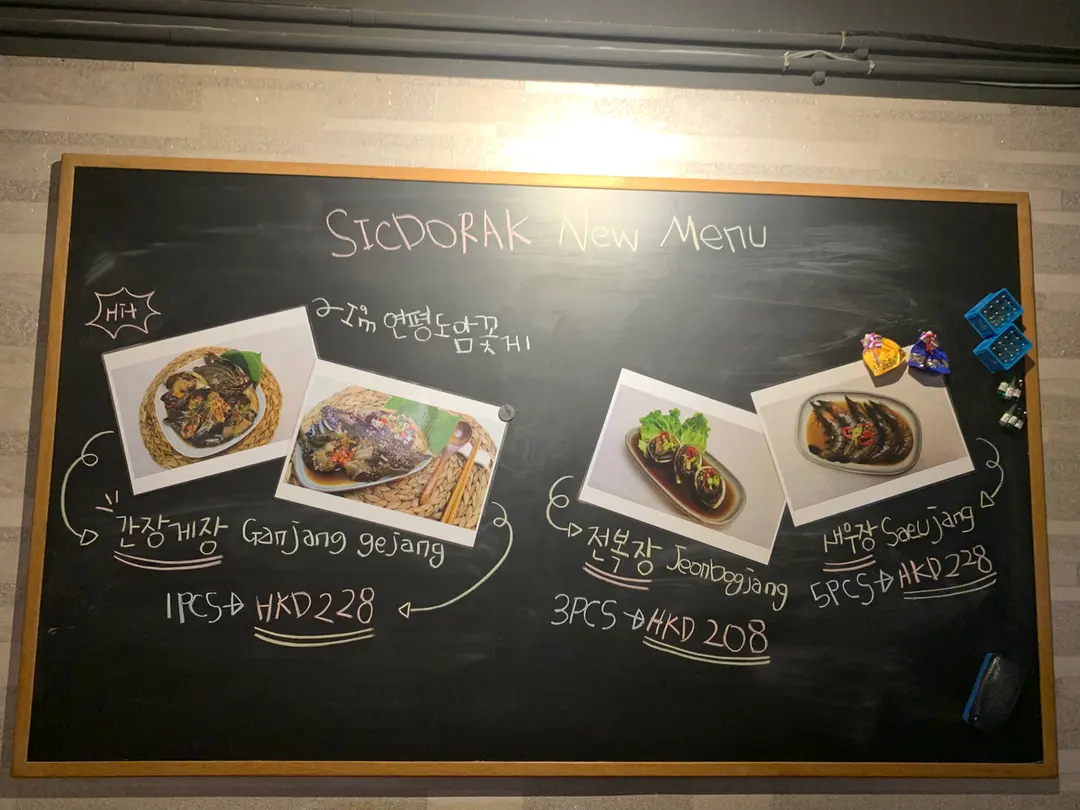 SICDORAK New Menu
Hit
연평도암꽃게
간장게장 Ganjang gejang
1PCS→ HKD228
전복장 Jeonbogjang
3PCS→HKD 208
새우장 Saeujang
5PCS→HKD228